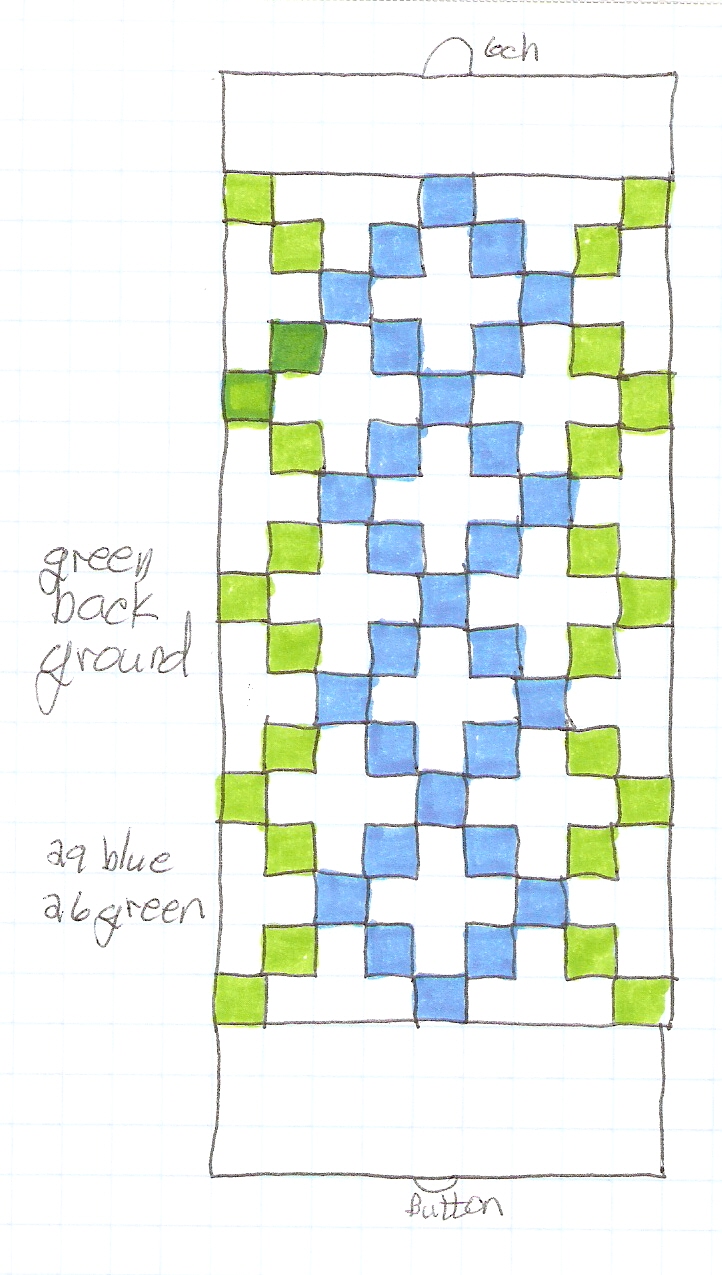 6ch
green
back
ground
29 blue
26 green
Button